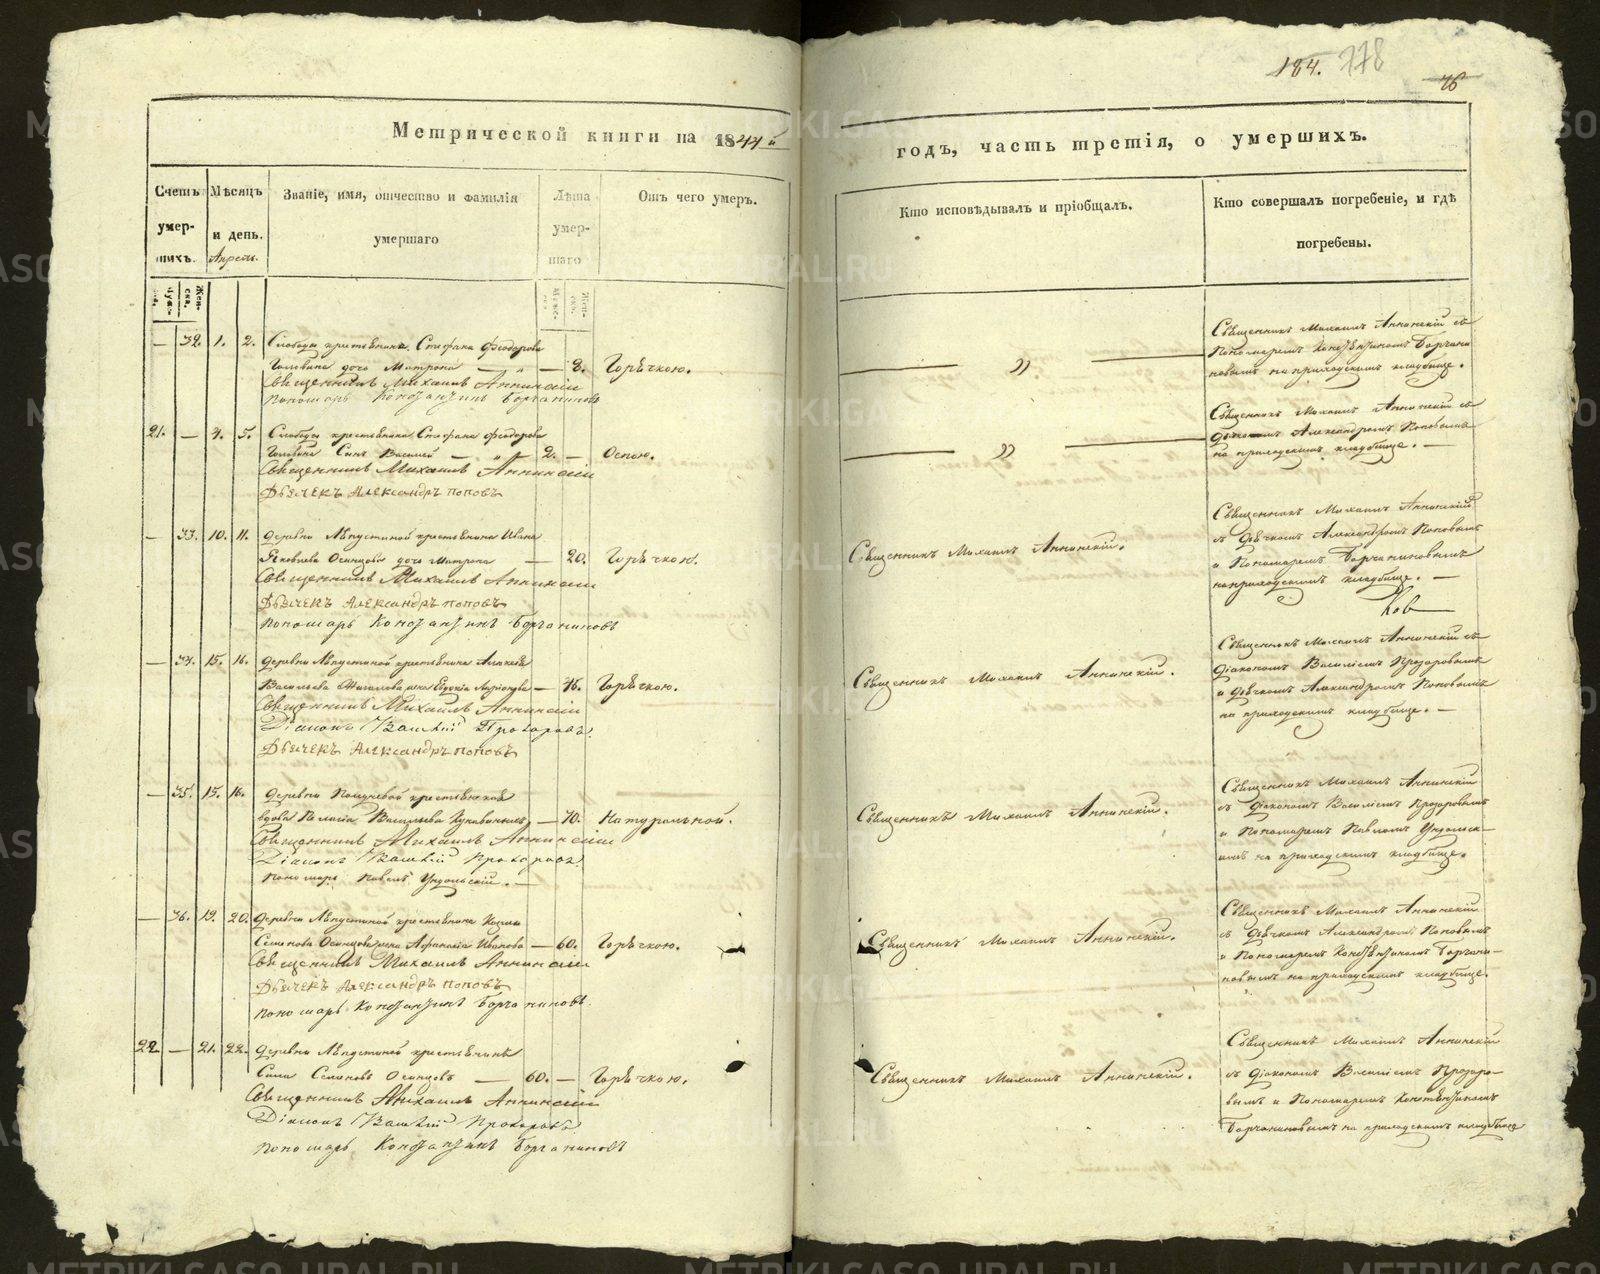 184. 778
76
Метрической книги на 1844й
годъ, часть третія, о умершихъ.
Счетъ умер-шихъ.
Мѣсяцъ и день.
Апрель.
Званіе, имя, отчество и фамилія умершаго
Лѣта умер-шаго
Отъ чего умеръ.
Кто исповѣдывалъ и пріобщалъ.
Кто совершалъ погребеніе, и гдѣ погребены.
— 32. 1. 2. Слободы крестьянина Стефана Феодорова
дочь Матрона — „ — 8. Горячкою.
Священникъ Михаилъ Аннинскій
Пономарь Константинъ Борчаниновъ
— „ —
Священникъ Михаилъ Аннинскій съ
Пономаремъ Константиномъ Борчани
новымъ на приходскомъ кладбище.
21. — 4. 5. Слободы крестьянина Стефана Феодорова
Сынъ Василій — „ — 2. — Оспою.
Священникъ Михаилъ Аннинскій
Дьячекъ Александръ Поповъ
— „ —
Священникъ Михаилъ Аннинскій съ
дьячкомъ Александромъ Поповымъ
на приходскомъ кладбище. —
— 33. 10. 11. Деревни крестьянина Ивана
Яковлева Осинцова дочь Матрона — 20. Горячкою.
Священникъ Михаилъ Аннинскій
Дьячекъ Александръ Поповъ
Пономарь Константинъ Борчаниновъ
Священникъ Михаилъ Аннинскій.
Священникъ Михаилъ Аннинскій
съ дьячкомъ Александромъ Поповымъ
и Пономаремъ Борчаниновымъ
на приходскомъ кладбище. —
— 34. 15. 16. Деревни крестьянина Алексея
Васильева жена Евдокія — 76. Горячкою.
Священникъ Михаилъ Аннинскій
Діаконъ Василій Прозоровъ
Дьячекъ Александръ Поповъ
Священникъ Михаилъ Аннинскій.
Священникъ Михаилъ Аннинскій съ
діакономъ Василіемъ Прозоровымъ
и дьячкомъ Александромъ Поповымъ
на приходскомъ кладбище. —
— 35. 15. 16. Деревни крестьянская
вдова Васильева — 70. Натуральной.
Священникъ Михаилъ Аннинскій
Діаконъ Василій Прозоровъ
Пономарь Павелъ Ундольскій. —
Священникъ Михаилъ Аннинскій.
Священникъ Михаилъ Аннинскій
съ діакономъ Василіемъ Прозоровымъ
и Пономаремъ Павломъ Ундольск-
имъ на приходскомъ кладбище.
— 36. 19. 20. Деревни крестьянина
Семенова Осинцова жена Афанасія Иванова — 60. Горячкою.
Священникъ Михаилъ Аннинскій
Дьячекъ Александръ Поповъ
Пономарь Константинъ Борчаниновъ.
Священникъ Михаилъ Аннинскій.
Священникъ Михаилъ Аннинскій
съ дьячкомъ Александромъ Поповымъ
и Пономаремъ Константиномъ Борчани-
новымъ на приходскомъ кладбище.
22. — 21. 22. Деревни крестьянинъ
Семеновъ Осинцовъ — 60. — Горячкою.
Священникъ Михаилъ Аннинскій
Діаконъ Василій Прозоровъ
Пономарь Константинъ Борчаниновъ
Священникъ Михаилъ Аннинскій.
Священникъ Михаилъ Аннинскій
съ діакономъ Василіемъ Прозоро-
вымъ и Пономаремъ Константиномъ
Борчаниновымъ на приходскомъ кладбище